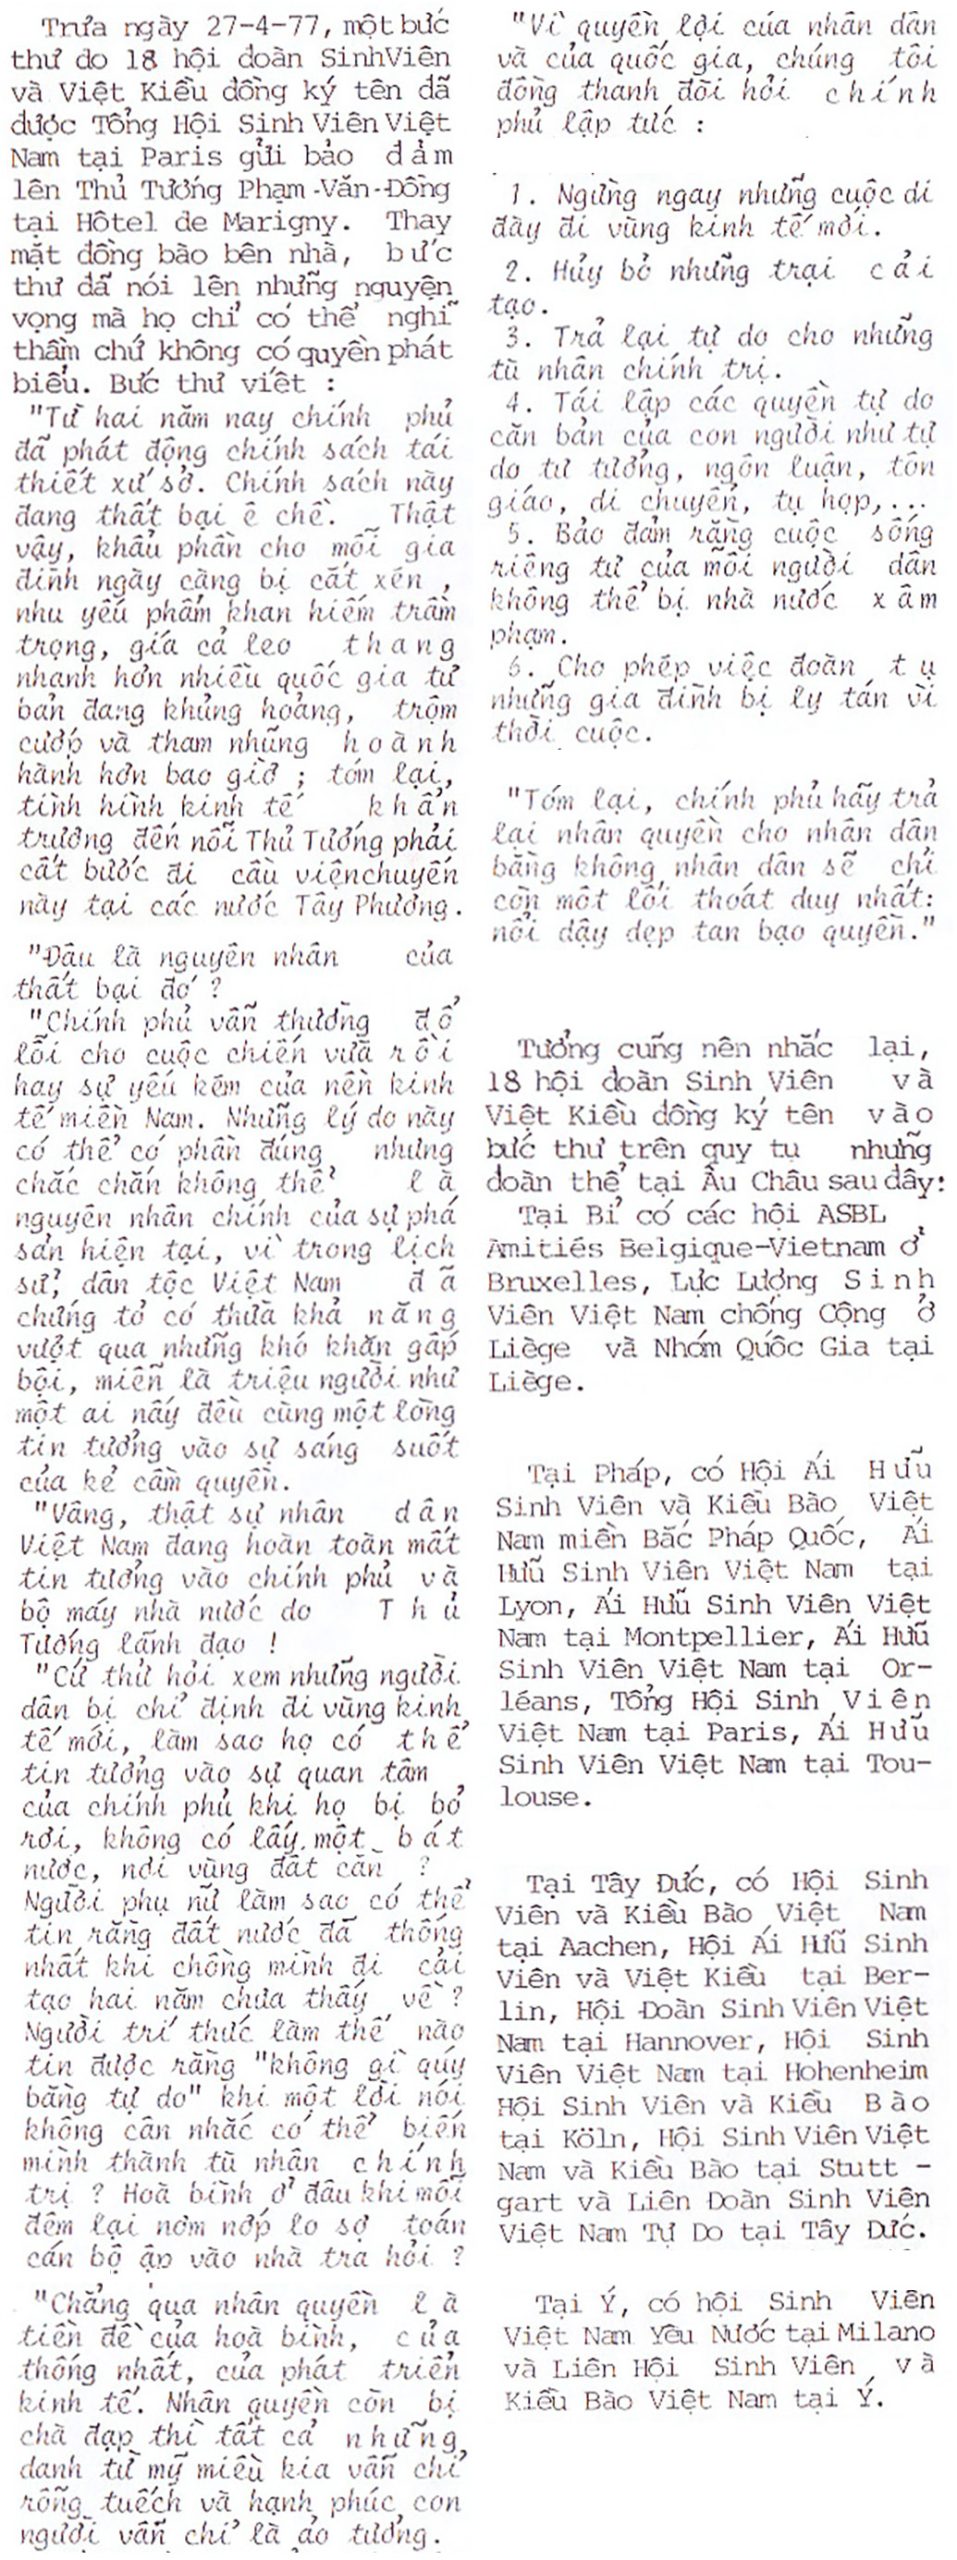 Trưa ngày 27-4-77, một bức
thư do 18 hội đoàn SinhViên
và Việt Kiều đồng ký tên đã
được Tổng Hội Sinh Viên Việt
Nam tại Paris gửi bảo đảm
lên Thủ Tướng Phạm-Văn-Đồng
tại Hôtel de Marigny. Thay
mặt đồng bào bên nhà, bức
thư đã nói lên những nguyện
vọng mà họ chỉ có thể nghĩ
thầm chứ không có quyền phát
biểu. Bức thư viết :
"Từ hai năm nay chính phủ
đã phát động chính sách tái
thiết xứ sở. Chính sách này
đang thất bại ê chề. Thật
vậy, khẩu phần cho mỗi gia
đình ngày càng bị cắt xén ,
nhu yếu phẩm khan hiếm trầm
trọng, giá cả leo thang
nhanh hơn nhiều quốc gia tư
bản đang khủng hoảng, trộm
cướp và tham nhũng hoành
hành hơn bao giờ ; tóm lại,
tình hình kinh tế khẩn
trương đến nỗi Thủ Tướng phải
cất bước đi cầu việnchuyến
này tại các nước Tây Phương.
"Đâu là nguyên nhân của
thất bại đó ?
"Chính phủ vẫn thường đổ
lỗi cho cuộc chiến vừa rồi
hay sự yếu kém của nền kinh
tế miền Nam. Những lý do này
có thể có phần đúng nhưng
chắc chắn không thể là
nguyên nhân chính của sự phá
sản hiện tại, vì trong lịch
sử, dân tộc Việt Nam đã
chứng tỏ có thừa khả năng
vượt qua những khó khăn gấp
bội, miễn là triệu người như
một ai nấy đều cùng một lòng
tin tưởng vào sự sáng suốt
của kẻ cầm quyền.
"Vâng, thật sự nhân dân
Việt Nam đang hoàn toàn mất
tin tưởng vào chính phủ và
bộ máy nhà nước do Thủ
Tướng lãnh đạo !
"Cứ thử hỏi xem những người
dân bị chỉ định đi vùng kinh
tế mới, làm sao họ có thể
tin tưởng vào sự quan tâm
của chính phủ khi họ bị bỏ
rơi, không có lấy một bát
nước, nơi vùng đất cằn ?
Người phụ nữ làm sao có thể
tin rằng đất nước đã thống
nhất khi chồng mình đi cải
tạo hai năm chưa thấy về ?
Người trí thức làm thế nào
tin được rằng "không gì quý
bằng tự do" khi một lời nói
không cân nhắc có thể biến
mình thành tù nhân chính
trị ? Hoà bình ở đâu khi mỗi
đêm lại nơm nớp lo sợ toán
cán bộ ập vào nhà tra hỏi ?
"Chẳng qua nhân quyền là
tiền đề của hoà bình, của
thống nhất, của phát triển
kinh tế. Nhân quyền còn bị
chà đạp thì tất cả những
danh từ mỹ miều kia vẫn chỉ
rỗng tuếch và hạnh phúc con
người vẫn chỉ là ảo tưởng.
"Vì quyền lợi của nhân dân
và của quốc gia, chúng tôi
đồng thanh đòi hỏi chính
phủ lập tức :
1. Ngừng ngay những cuộc di
đày đi vùng kinh tế mới.
2. Hủy bỏ những trại cải
tạo.
3. Trả lại tự do cho những
tù nhân chính trị.
4. Tái lập các quyền tự do
căn bản của con người như tự
do tư tưởng, ngôn luận, tôn
giáo, di chuyển, tụ họp,...
5. Bảo đảm rằng cuộc sống
riêng tư của mỗi người dân
không thể bị nhà nước xâm
phạm.
6. Cho phép việc đoàn tụ
những gia đình bị ly tán vì
thời cuộc.
"Tóm lại, chính phủ hãy trả
lại nhân quyền cho nhân dân
bằng không nhân dân sẽ chỉ
còn một lối thoát duy nhất:
nổi dậy dẹp tan bạo quyền."
Tưởng cũng nên nhắc lại,
18 hội đoàn Sinh Viên và
Việt Kiều đồng ký tên vào
bức thư trên quy tụ những
đoàn thể tại Âu Châu sau đây:
Tại Bỉ có các hội ASBL
Amitiés Belgique-Vietnam ở
Bruxelles, Lực Lượng Sinh
Viên Việt Nam chống Cộng ở
Liège và Nhóm Quốc Gia tại
Liège.
Tại Pháp, có Hội Ái Hữu
Sinh Viên và Kiều Bào Việt
Nam miền Bắc Pháp Quốc, Ái
Hữu Sinh Viên Việt Nam tại
Lyon, Ái Hữu Sinh Viên Việt
Nam tại Montpellier, Ái Hữu
Sinh Viên Việt Nam tại Or-
léans, Tổng Hội Sinh Viên
Việt Nam tại Paris, Ái Hữu
Sinh Viên Việt Nam tại Tou-
louse.
Tại Tây Đức, có Hội Sinh
Viên và Kiều Bào Việt Nam
tại Aachen, Hội Ái Hữu Sinh
Viên và Việt Kiều tại Ber-
lin, Hội Đoàn Sinh Viên Việt
Nam tại Hannover, Hội Sinh
Viên Việt Nam tại Hohenheim
Hội Sinh Viên và Kiều Bào
tại Köln, Hội Sinh Viên Việt
Nam và Kiều Bào tại Stutt -
gart và Liên Đoàn Sinh Viên
Việt Nam Tự Do tại Tây Đức.
Tại Ý, có hội Sinh Viên
Việt Nam Yêu Nước tại Milano
và Liên Hội Sinh Viên và
Kiều Bào Việt Nam tại Ý.